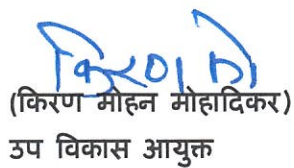 किरण मो
(किरण मोहन मोहादिकर)
उप विकास आयुक्त